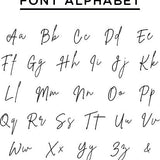 FONT ALPHABET
Aa Bb Cc Dd Ee
Ff Gg Hh Ii Jj Kk
Ll Mm Nn Oo Pp
Qq Rr Ss Tt Uu Vv
Ww Xx Yy Zz &